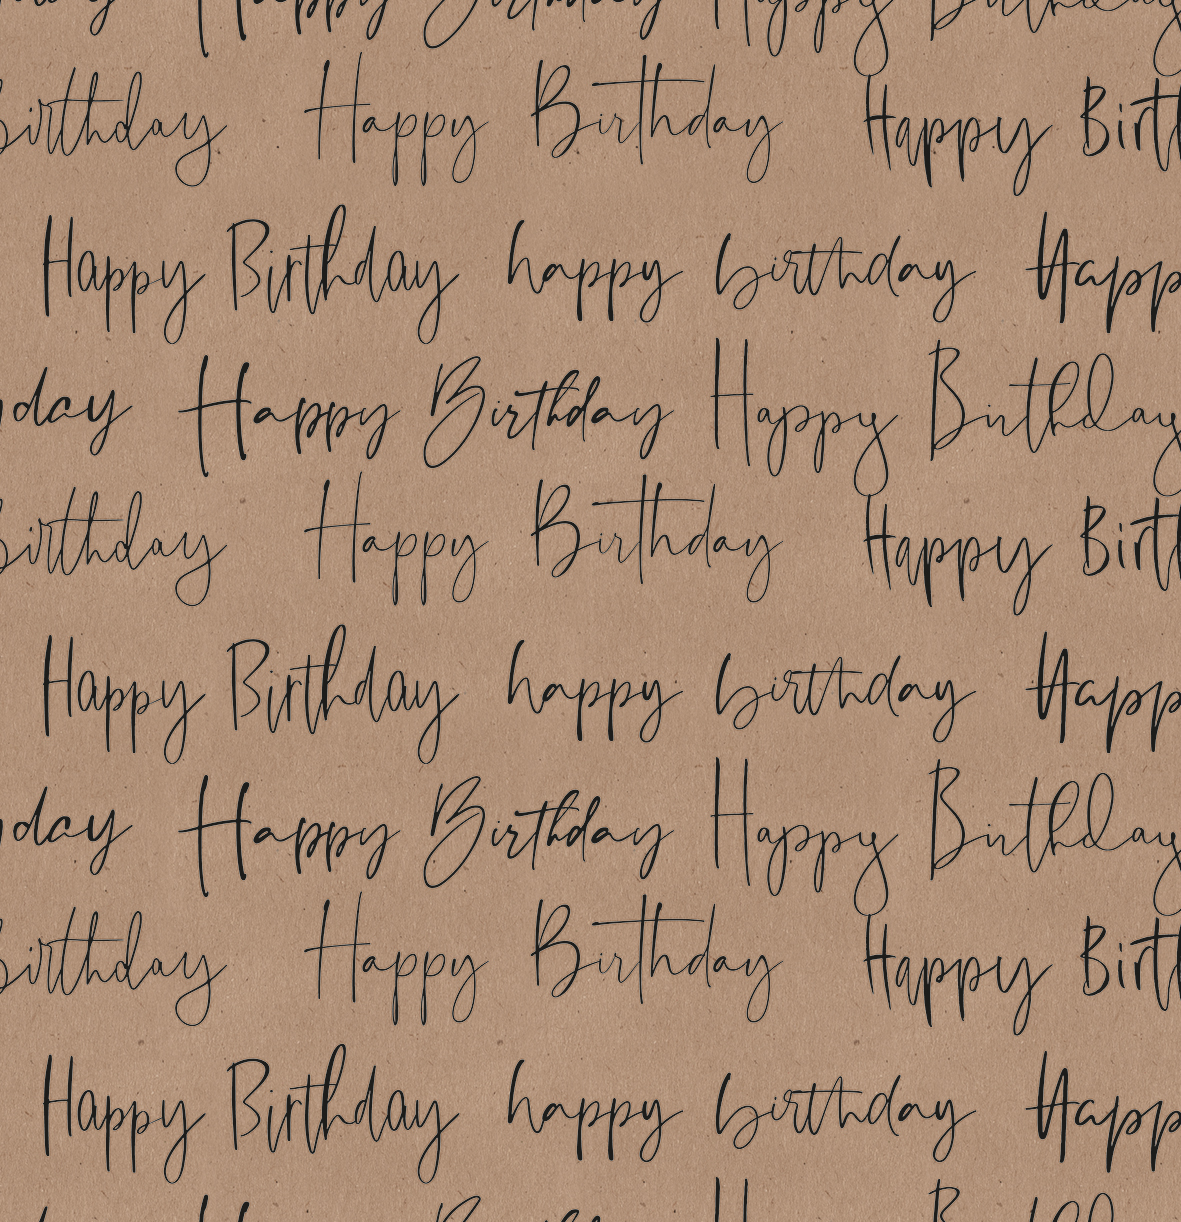 Happy Birthday Happy
birthday Happy Birthday Happy Birt
Happy Birthday happy birthday Happ
day Happy Birthday Happy Birthday
birthday Happy Birthday Happy Birt
Happy Birthday happy birthday Happ
day Happy Birthday Happy Birthday
birthday Happy Birthday Happy Birt
Happy Birthday happy birthday Happ